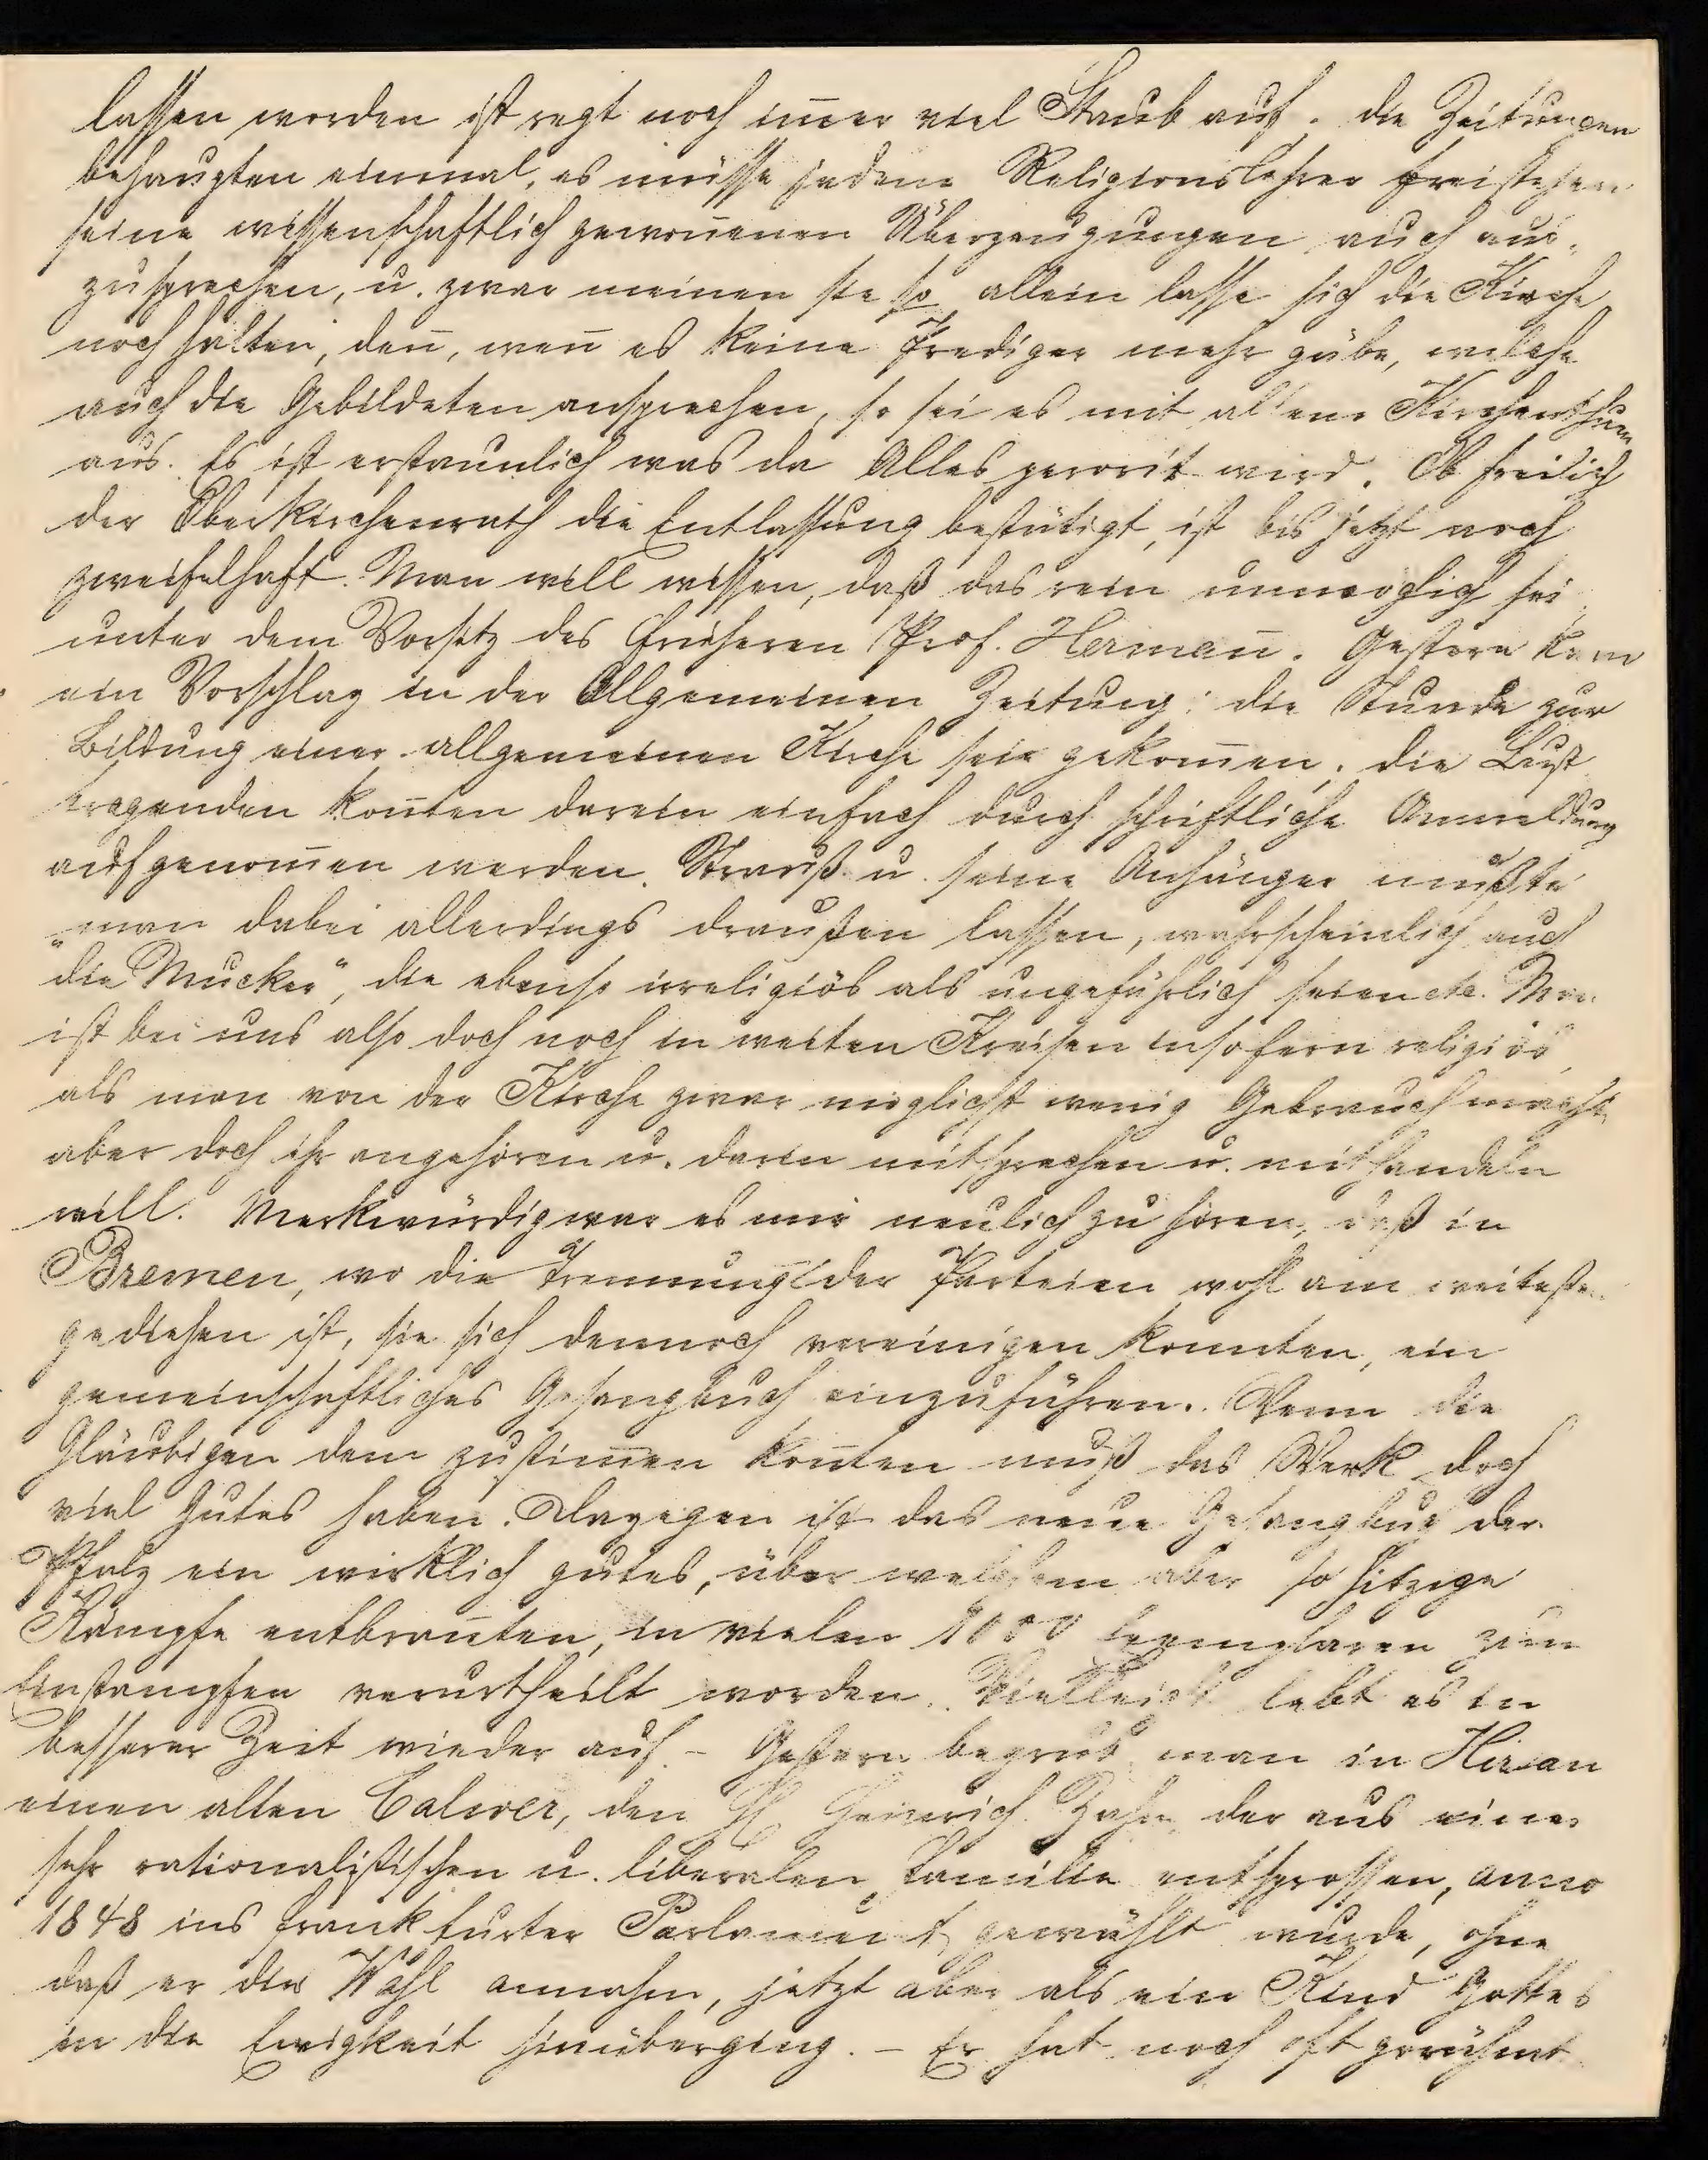 lassen worden ist regt noch im̄er viel Staub auf. die Zeitungen
behaupten einmal, es müsse jedem Religionslehrer freistehen
seine wissenschaftlich gewon̄enen Überzeugungen auch aus-
zusprechen, u. zwar meinen sie so allein lasse sich die Kirche
noch halten, den̄, wen̄ es keine Prediger mehr gäbe, welche
auch die Gebildeten ansprechen, so sei es mit allem Kirchenthum
aus. Es ist erstaunlich was da Alles perorirt wird. Ob freilich
der Oberkirchenrath die Entlassung bestätigt, ist bis jetzt noch
zweifelhaft. Man will wissen, daß das rein unmöglich sei
unter dem Vorsitz des früheren Prof. Herman̄. Gestern kam
ein Vorschlag in der Allgemeinen Zeitung: die Stunde zur
Bildung einer allgemeinen Kirche sei gekom̄en, die Lust
tragenden kön̄ten darein einfach durch schriftliche Anmeldung
aufgenom̄en werden. Strauß u. seine Anhänger müßte
man dabei allerdings draußen lassen, wahrscheinlich auch
"die Mucker", die ebenso irreligiös als ungefährlich seien etc. Man
ist bei uns also doch noch in weiten Kreisen insofern religiös,
als man von der Kirche zwar möglichst wenig Gebrauch macht,
aber doch ihr angehören u. darin mitsprechen u. mithandeln
will. Merkwürdig war es mir neulich zu hören, daß in
Bremen, wo die Trennung der Parteien wohl am weitesten
gediehen ist, sie sich dennoch vereinigen konnten, ein
gemeinschaftliches Gesangbuch einzuführen. Wenn die
Gläubigen dem zustim̄en kon̄ten muß das Werk doch
viel Gutes haben. Dagegen ist das neue Gesangbuch der
Pfalz ein wirklich gutes, über welchem aber so hitzige
Kämpfe entbran̄ten, in vielen 1000 Exemplaren zum
Einstampfen verurtheilt worden. Vielleicht lebt es in
besserer Zeit wieder auf. - Gestern begrub man in Hirsau
einen alten Calwer, den H Heinrich Zahn, der aus einer
sehr rationalistischen u. liberalen Familie entsprossen, anno
1848 ins Frankfurter Parlament gewählt wurde, ohne
daß er die Wahl annahm, jetzt aber als ein Kind Gottes
in die Ewigkeit hinüberging. - Er hat noch oft gerühmt